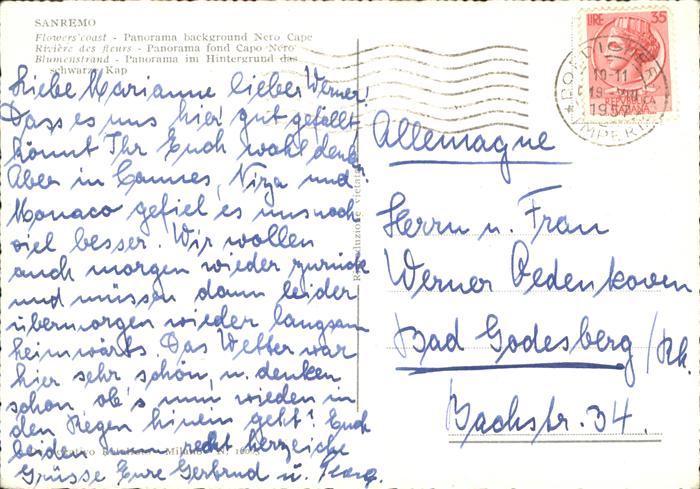 SANREMO
Flowers'coast - Panorama background Nero Cape
Rivière des fleurs - Panorama fond Capo Nero
Blumenstrand - Panorama im Hintergrund das
schwarze Kap
Liebe Marianne lieber Werner!
Dass es uns hier gut gefällt
könnt Ihr Euch wohl denken.
Aber in Cannes, Nizza und
Monaco gefiel es uns noch
viel besser. Wir wollen
auch morgen wieder zurück
und müssen dann leider
übermorgen wieder langsam
heimwärts. Das Wetter war
hier sehr schön, u. denken
schon ob's nun wieder in
den Regen hinein geht! Euch
beiden recht herzliche
Grüsse Eure Gertrud u. Georg.
Milano
Riproduzione vietata
LIRE 35
REPUBBLICA
ITALIANA
10-11
19
195
IMPERIA
Allemagne
Herrn u. Frau
Werner Oedenkoven
Bad Godesberg /Rh.
Bachstr. 34.